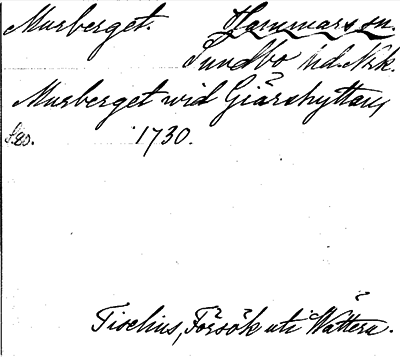 Murberget. Hammars sn.
Sundbo hd. Nrk.
Murberget wid Giärshyttan,
s. 80. 1730.
Tiselius, Försök uti Wättern.